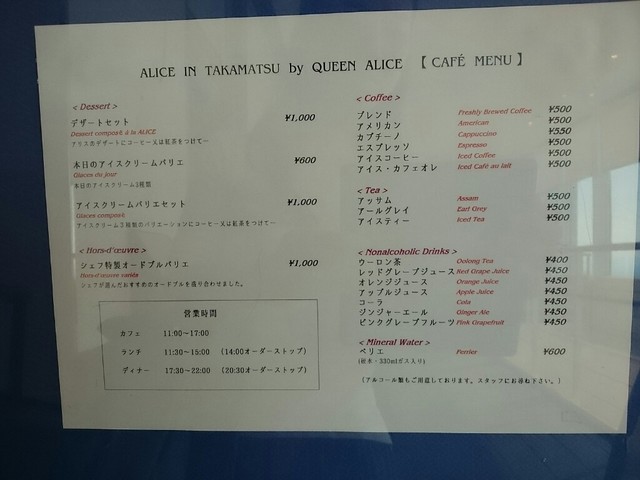 ALICE IN TAKAMATSU by QUEEN ALICE 【CAFÉ MENU】
< Dessert >
デザートセット ¥1,000
Dessert composé à la ALICE
アリスのデザートにコーヒー又は紅茶をつけて…
本日のアイスクリームバリエ ¥600
Glaces du jour
本日のアイスクリーム3種類
アイスクリームバリエセット ¥1,000
Glaces composé
アイスクリーム3種類のバリエーションにコーヒー又は紅茶をつけて…
< Hors-d'œuvre >
シェフ特製オードブルバリエ ¥1,000
Hors-d'œuvre variés
シェフが選んだおすすめのオードブルを盛り合わせました。
営業時間
カフェ 11:00～17:00
ランチ 11:30～15:00 (14:00オーダーストップ)
ディナー 17:30～22:00 (20:30オーダーストップ)
< Coffee >
ブレンド Freshly Brewed Coffee ¥500
アメリカン American ¥500
カプチーノ Cappuccino ¥550
エスプレッソ Espresso ¥500
アイスコーヒー Iced Coffee ¥500
アイス・カフェオレ Iced Café au lait ¥500
< Tea >
アッサム Assam ¥500
アールグレイ Earl Grey ¥500
アイスティー Iced Tea ¥500
< Nonalcoholic Drinks >
ウーロン茶 Oolong Tea ¥400
レッドグレープジュース Red Grape Juice ¥450
オレンジジュース Orange Juice ¥450
アップルジュース Apple Juice ¥450
コーラ Cola ¥450
ジンジャーエール Ginger Ale ¥450
ピンクグレープフルーツ Pink Grapefruit ¥450
< Mineral Water >
ペリエ Perrier ¥600
(瓶本・330mlガス入り)
(アルコール類もご用意しております。スタッフにお尋ね下さい。)